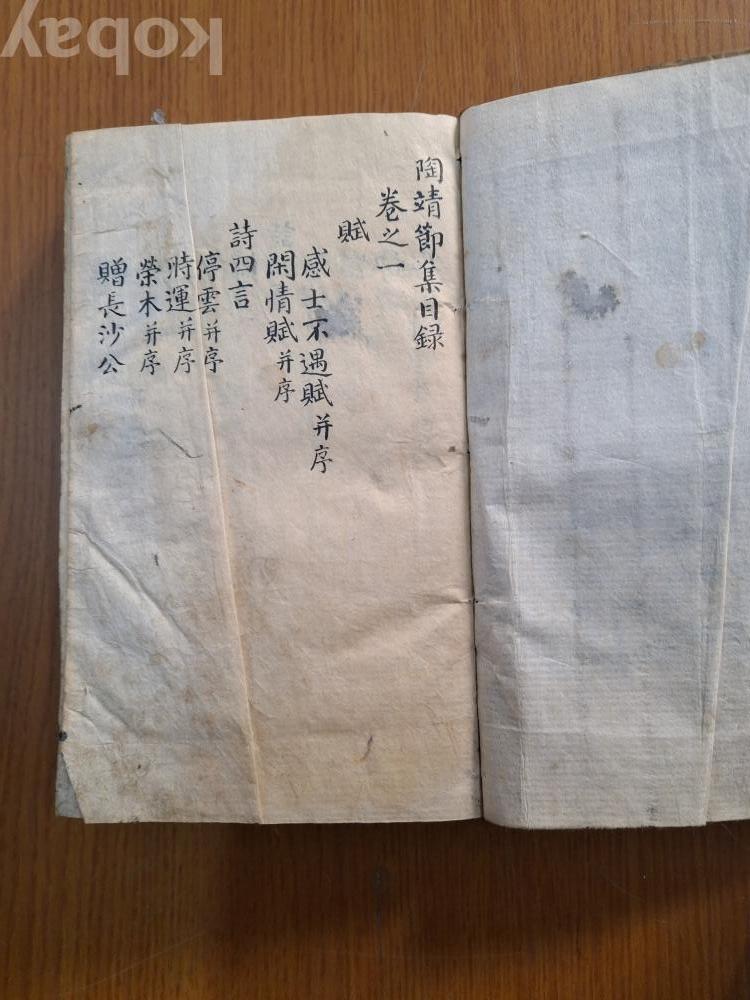 kobay
陶靖節集目録
卷之一
賦
感士不遇賦并序
閑情賦并序
詩四言
停雲并序
時運并序
榮木并序
贈長沙公